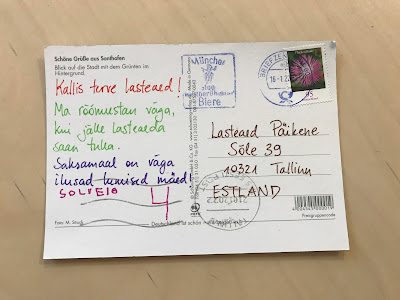 Schöne Grüße aus Sonthofen
Blick auf die Stadt mit dem Grünten im
Hintergrund.
Kallis terve lasteaed!
Ma rõõmustan väga,
kui jälle lasteaeda
saan tulla.
Saksamaal on väga
ilusad lumised mäed!
SOLVEIG
4
Foto: M. Stock
Deutschland ist schön
Münchner
Biere
BRIEFZE
95
Lasteaed Päikene
Sõle 39
10321 Tallinn
ESTLAND
Feingruppencode